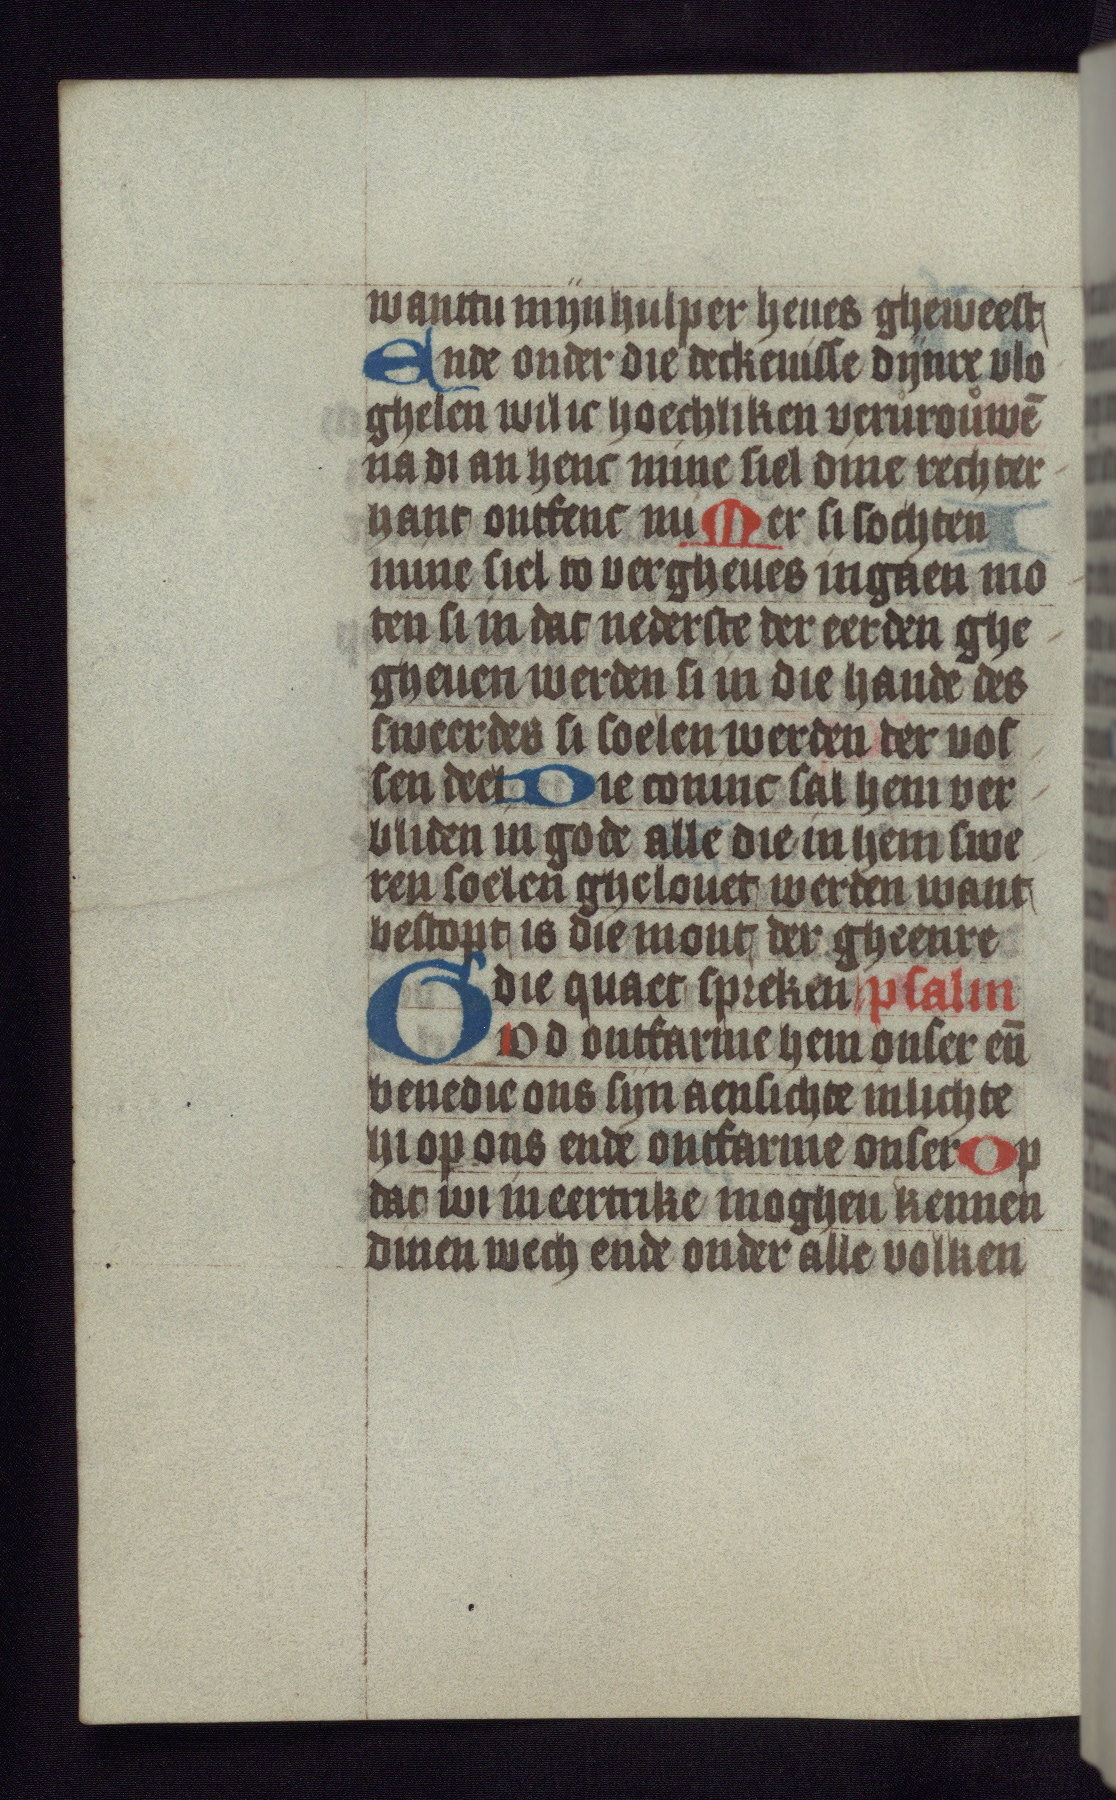 wanttu mijn hulper heues gheweest
Ende onder die deckenisse dijnre vlo
ghelen wil ic hoechliken verurouwē
na di an henc mine siel dine rechter
hant ontfenc mi Mer si sochten
mine siel to vergheues ingaen mo
ten si in dat nederste der eerden ghe
gheuen werden si in die hande des
sweerdes si soelen werden der vos
sen deel Die coninc sal hem ver
bliden in gode alle die in hem swe
ren soelen ghelouet werden want
bestopt is die mont der gheenre
die quaet spreken psalm
God ontfarme hem onser eñ
benedie ons sijn aensichte inlichte
hi op ons ende ontfarme onser Op
dat wi in eertrike moghen kennen
dinen wech ende onder alle volken